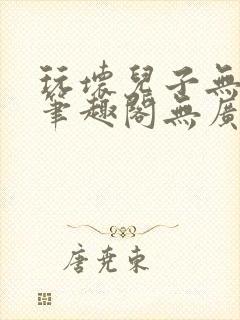 玩壞兒子無
筆趣閣無廣
唐堯東